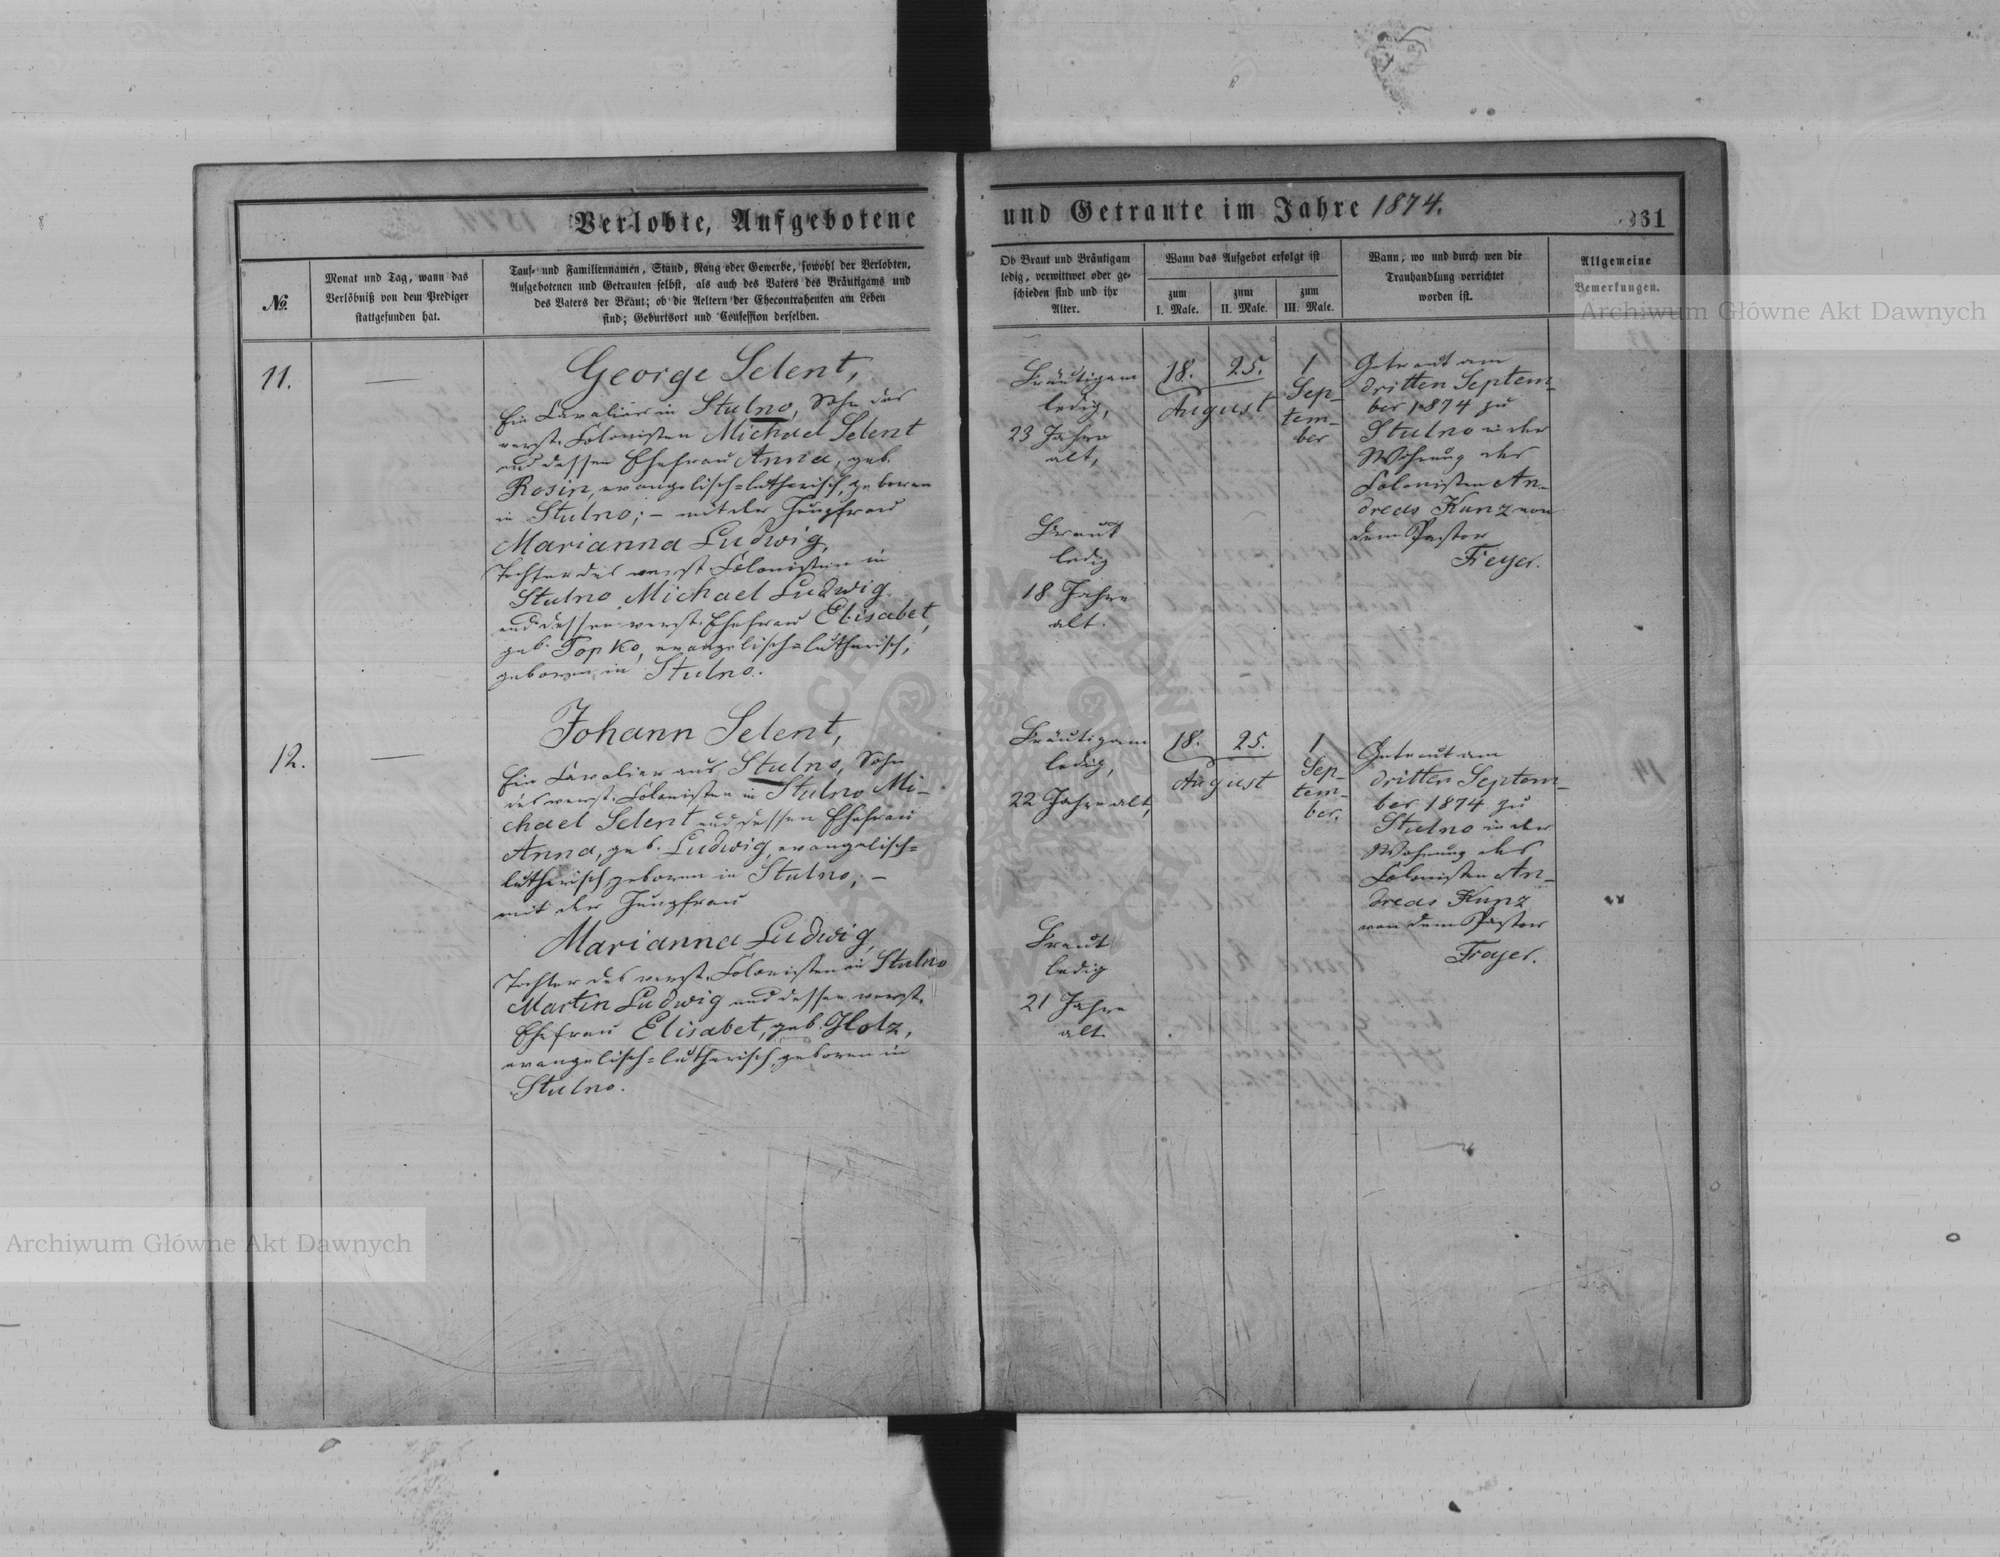 Verlobte, Aufgebotene und Getraute im Jahre 1874.
331
№.
Monat und Tag, wann das
Verlöbniß von dem Prediger
stattgefunden hat.
Tauf- und Familiennamen, Stand, Rang oder Gewerbe, sowohl der Verlobten,
Aufgebotenen und Getrauten selbst, als auch des Vaters des Bräutigams und
des Vaters der Braut; ob die Aeltern der Ehecontrahenten am Leben
sind; Geburtsort und Confession derselben.
Ob Braut und Bräutigam
ledig, verwittwet oder ge-
schieden sind und ihr
Alter.
Wann das Aufgebot erfolgt ist
zum
I. Male.
zum
II. Male.
zum
III. Male.
Wann, wo und durch wen die
Trauhandlung verrichtet
worden ist.
Allgemeine
Bemerkungen.
11.
George Selent,
Ein Cavalier in Stulno, Sohn des
verst. Colonisten Michael Selent
und dessen Ehefrau Anna, geb.
Rosin, evangelisch=lutherisch, geboren
in Stulno; – mit der Jungfrau
Marianna Ludwig,
Tochter des verst. Colonisten in
Stulno Michael Ludwig
und dessen verst. Ehefrau Elisabet,
geb. Popko, evangelisch=lutherisch,
geboren in Stulno.
Bräutigam
ledig,
23 Jahre
alt,
Braut
ledig
18 Jahre
alt.
18. 25.
August
1
Sep-
tem-
ber
Getraut am
dritten Septem-
ber 1874 zu
Stulno in der
Wohnung des
Colonisten An-
dreas Kunz von
dem Pastor
Freyer.
12.
Johann Selent,
Ein Cavalier aus Stulno, Sohn
des verst. Colonisten in Stulno Mi-
chael Selent und dessen Ehefrau
Anna, geb. Ludwig, evangelisch=
lutherisch, geboren in Stulno; –
mit der Jungfrau
Marianna Ludwig,
Tochter des verst. Colonisten in Stulno
Martin Ludwig und dessen verst.
Ehefrau Elisabet, geb. Hotz,
evangelisch=lutherisch, geboren in
Stulno.
Bräutigam
ledig,
22 Jahre alt,
Braut
ledig
21 Jahre
alt.
18. 25.
August
1
Sep-
tem-
ber.
Getraut am
dritten Septem-
ber 1874 zu
Stulno in der
Wohnung des
Colonisten An-
dreas Kunz
von dem Pastor
Freyer.
Archiwum Główne Akt Dawnych
Archiwum Główne Akt Dawnych